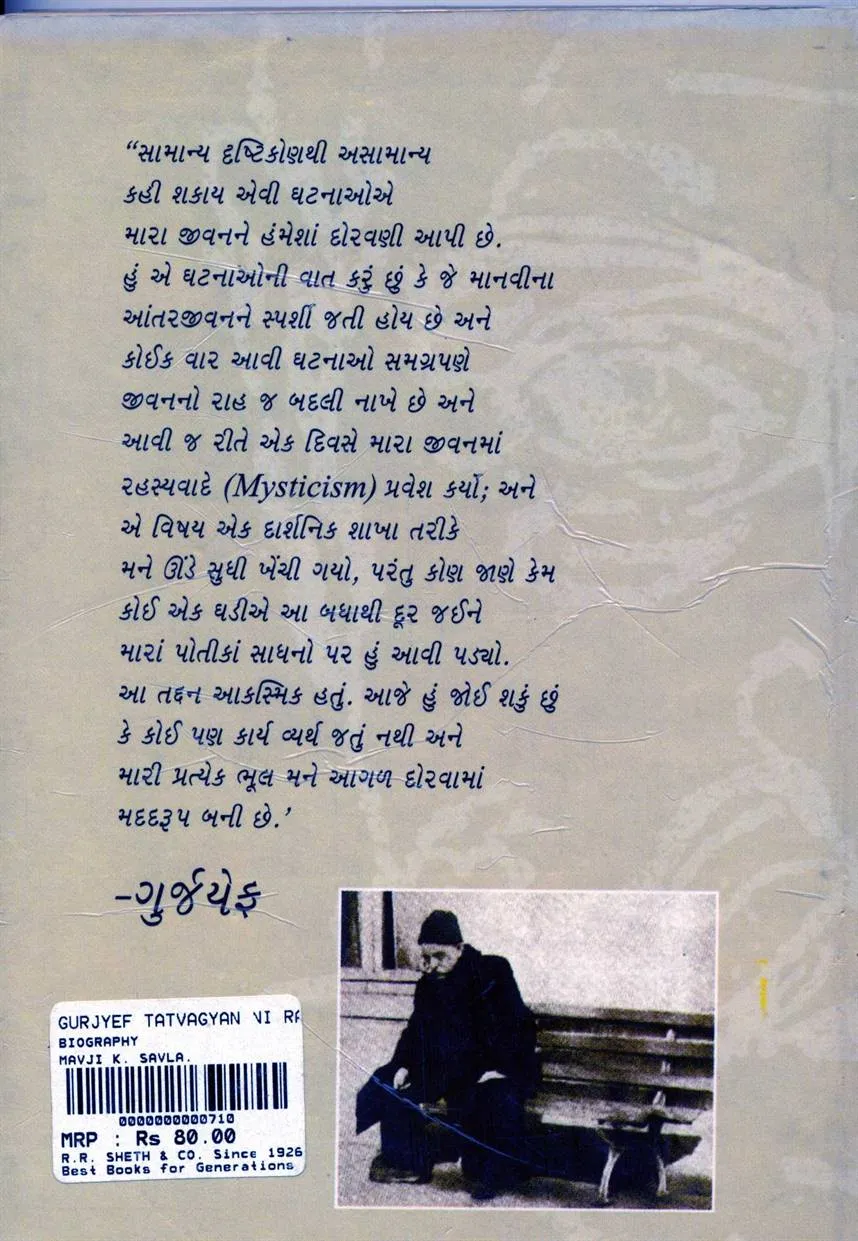 “સામાન્ય દૃષ્ટિકોણથી અસામાન્ય
કહી શકાય એવી ઘટનાઓએ
મારા જીવનને હંમેશાં દોરવણી આપી છે.
હું એ ઘટનાઓની વાત કરું છું કે જે માનવીના
આંતરજીવનને સ્પર્શી જતી હોય છે અને
કોઈક વાર આવી ઘટનાઓ સમગ્રપણે
જીવનનો રાહ જ બદલી નાખે છે અને
આવી જ રીતે એક દિવસે મારા જીવનમાં
રહસ્યવાદે (Mysticism) પ્રવેશ કર્યો; અને
એ વિષય એક દાર્શનિક શાખા તરીકે
મને ઊંડે સુધી ખેંચી ગયો, પરંતુ કોણ જાણે કેમ
કોઈ એક ઘડીએ આ બધાથી દૂર જઈને
મારાં પોતીકાં સાધનો પર હું આવી પડ્યો.
આ તદ્દન આકસ્મિક હતું. આજે હું જોઈ શકું છું
કે કોઈ પણ કાર્ય વ્યર્થ જતું નથી અને
મારી પ્રત્યેક ભૂલ મને આગળ દોરવામાં
મદદરૂપ બની છે.’
-ગુર્જયેફ
GURJYEF TATVAGYAN NI RA
BIOGRAPHY
MAVJI K. SAVLA.
0000000000710
MRP : Rs 80.00
R.R. SHETH & CO. Since 1926
Best Books for Generations